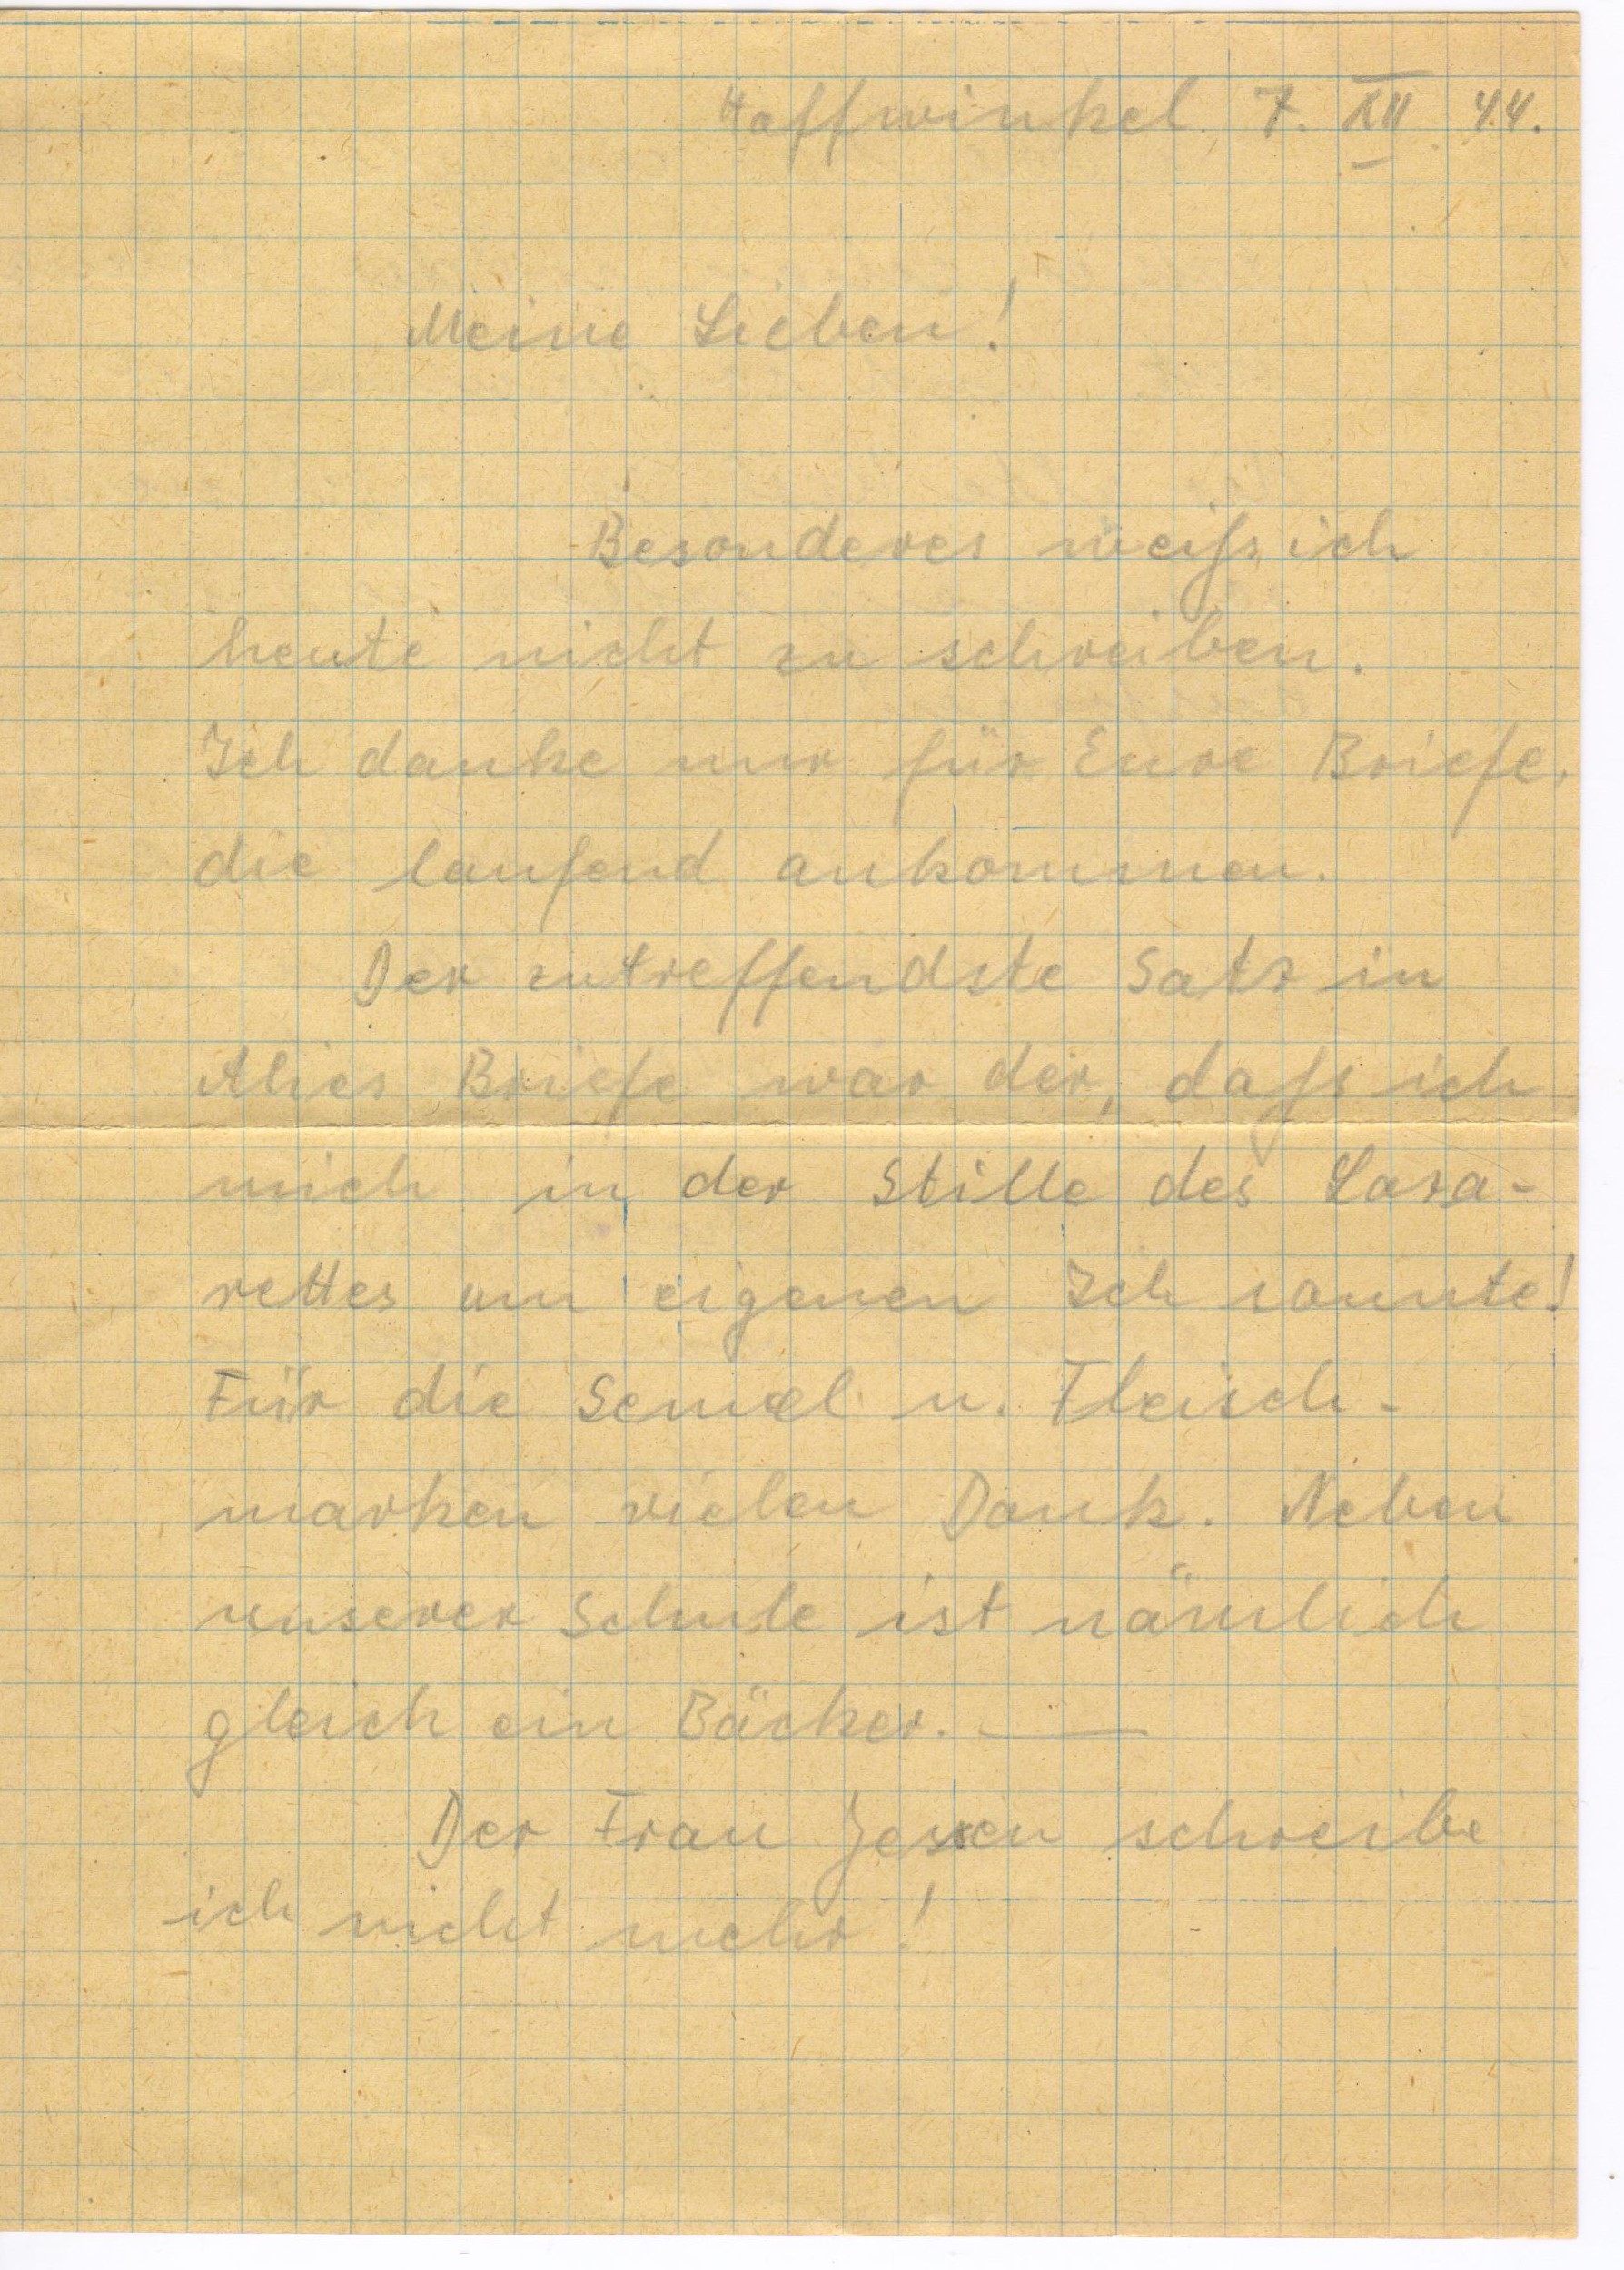 Haffwinkel 7. XII 44.
Meine Lieben!
Besonderes weiß ich
heute nicht zu schreiben.
Ich danke nur für Eure Briefe,
die laufend ankommen.
Der zutreffendste Satz in
Alies Briefe war der, daß ich
mich in der Stille des Laza-
rettes um eigenen Ich sonnte!
Für die Semmel u. Fleisch-
marken vielen Dank. Neben
unserer Schule ist nämlich
gleich ein Bäcker. —
Der Frau Jessen schreibe
ich nicht mehr!